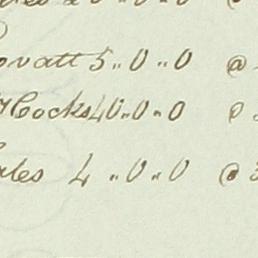 ovatt 5 .. 0 .. 0 @
Cocks 40 .. 0 .. 0 @
ales 4 .. 0 .. 0 @ 3